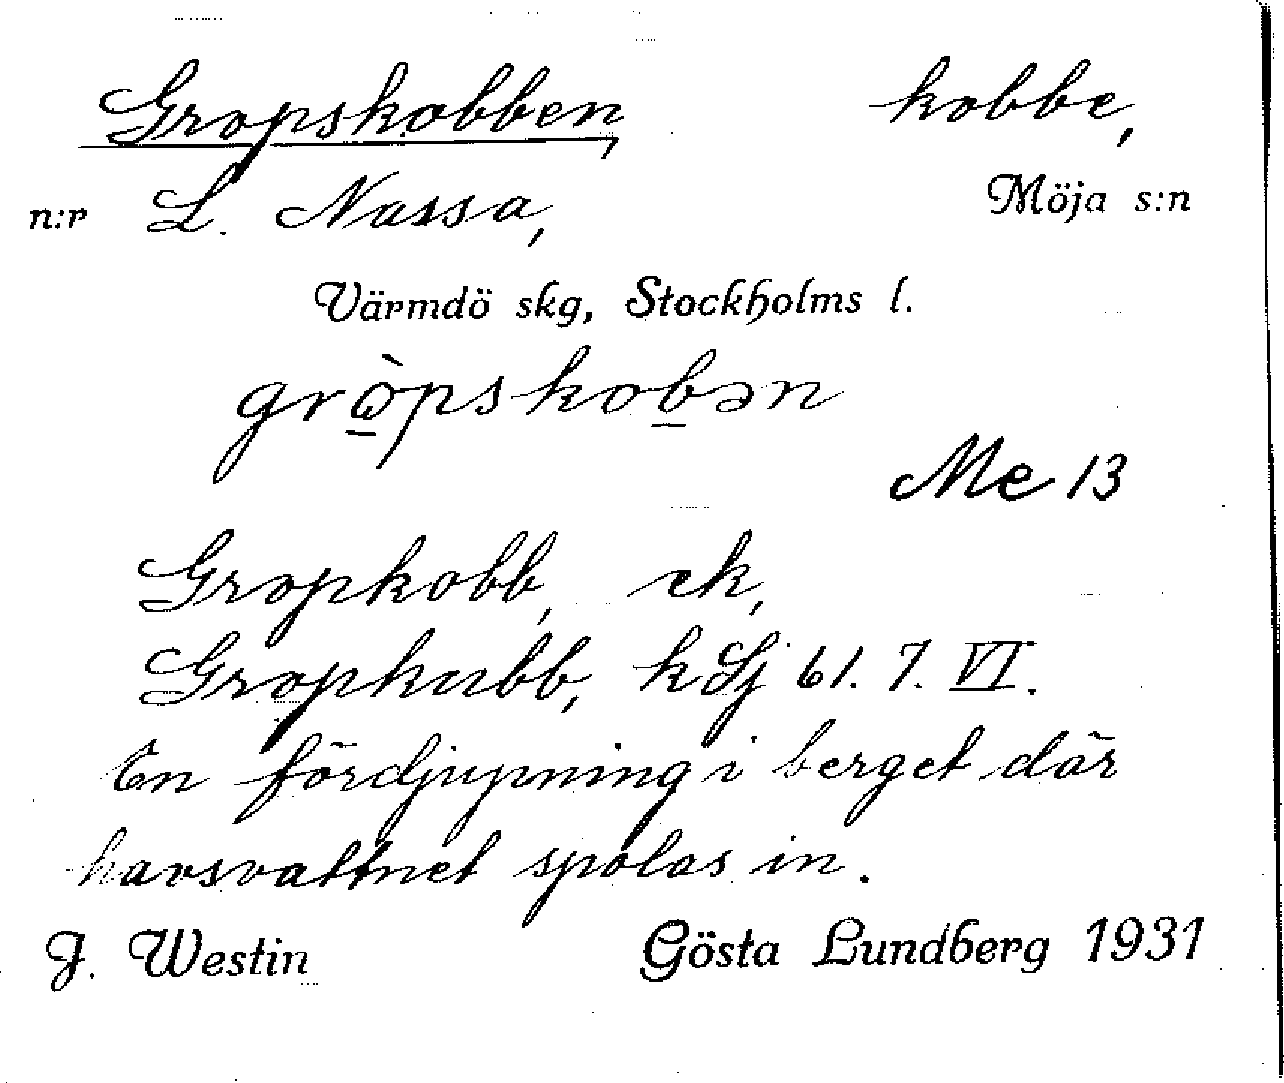 Gropskobben, kobbe,
n:r L. Nassa, Möja s:n
Värmdö skg, Stockholms l.
grò̱pskoḇən
Me 13
Gropkobb, ek,
Gropkubb, k Sj 61. 7. VI.
En fördjupning i berget där
havsvattnet spolas in.
J. Westin Gösta Lundberg 1931